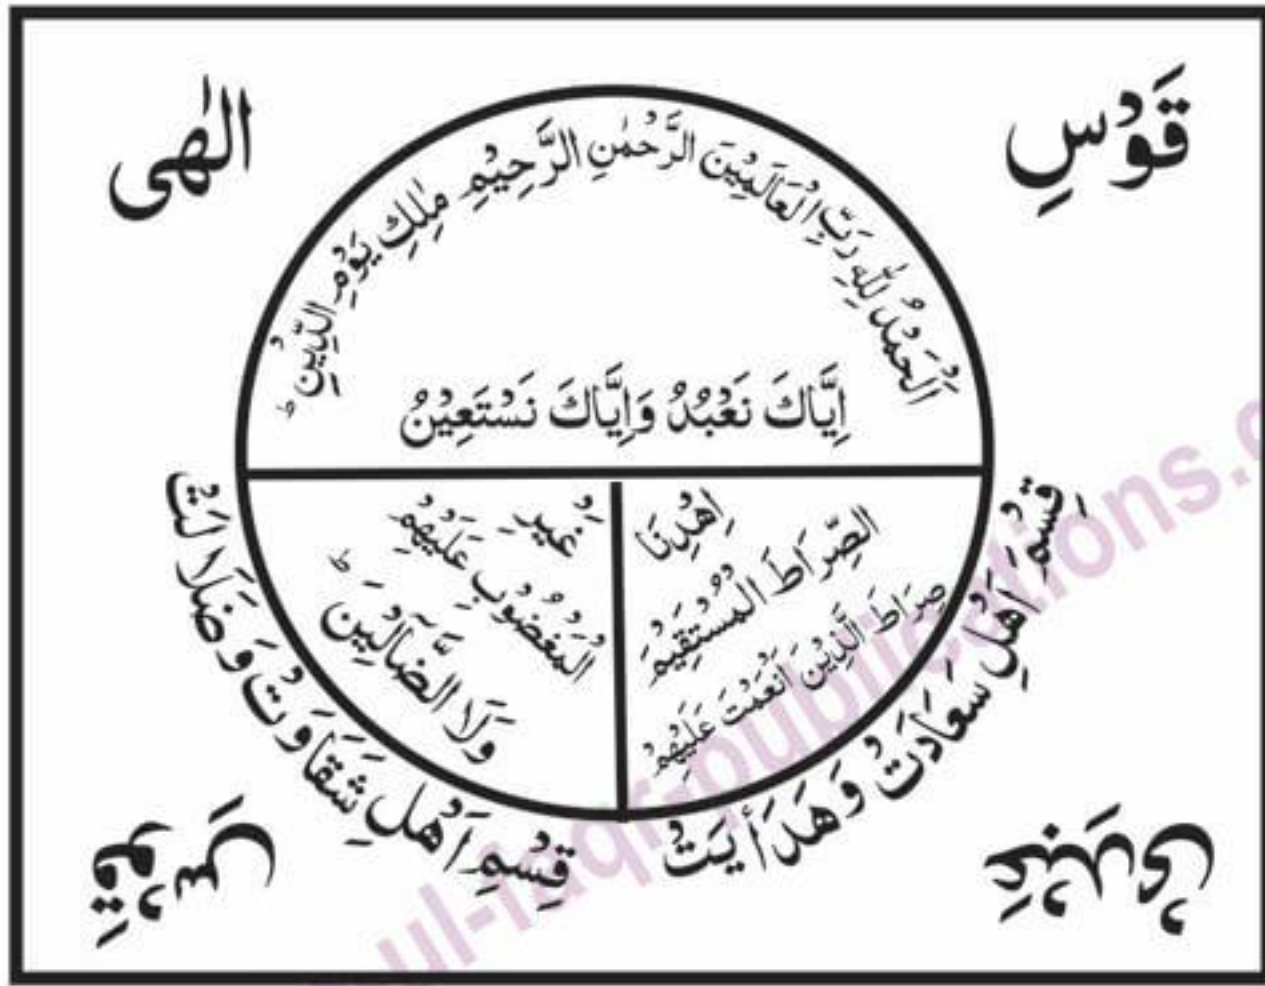 قَوْسِ
الٰهی
اَلْحَمْدُ لِلّٰهِ رَبِّ الْعَالَمِيْنَ الرَّحْمٰنِ الرَّحِيْمِ مٰلِكِ يَوْمِ الدِّيْنِ ط
اِيَّاكَ نَعْبُدُ وَاِيَّاكَ نَسْتَعِيْنُ
اِهْدِنَا
الصِّرَاطَ الْمُسْتَقِيْمَ
صِرَاطَ الَّذِيْنَ اَنْعَمْتَ عَلَيْهِمْ
غَيْرِ
الْمَغْضُوْبِ عَلَيْهِمْ
وَلَا الضَّآلِّيْنَ ط
قِسْمِ اَهْلِ سَعَادَتْ وَ هَدَأيَتْ
قِسْمِ اَهْلِ شَقَاوَتْ وَ ضَلَالَتْ
قَوْسِ
عَبْدِیْ
ul-faqr-publications.c